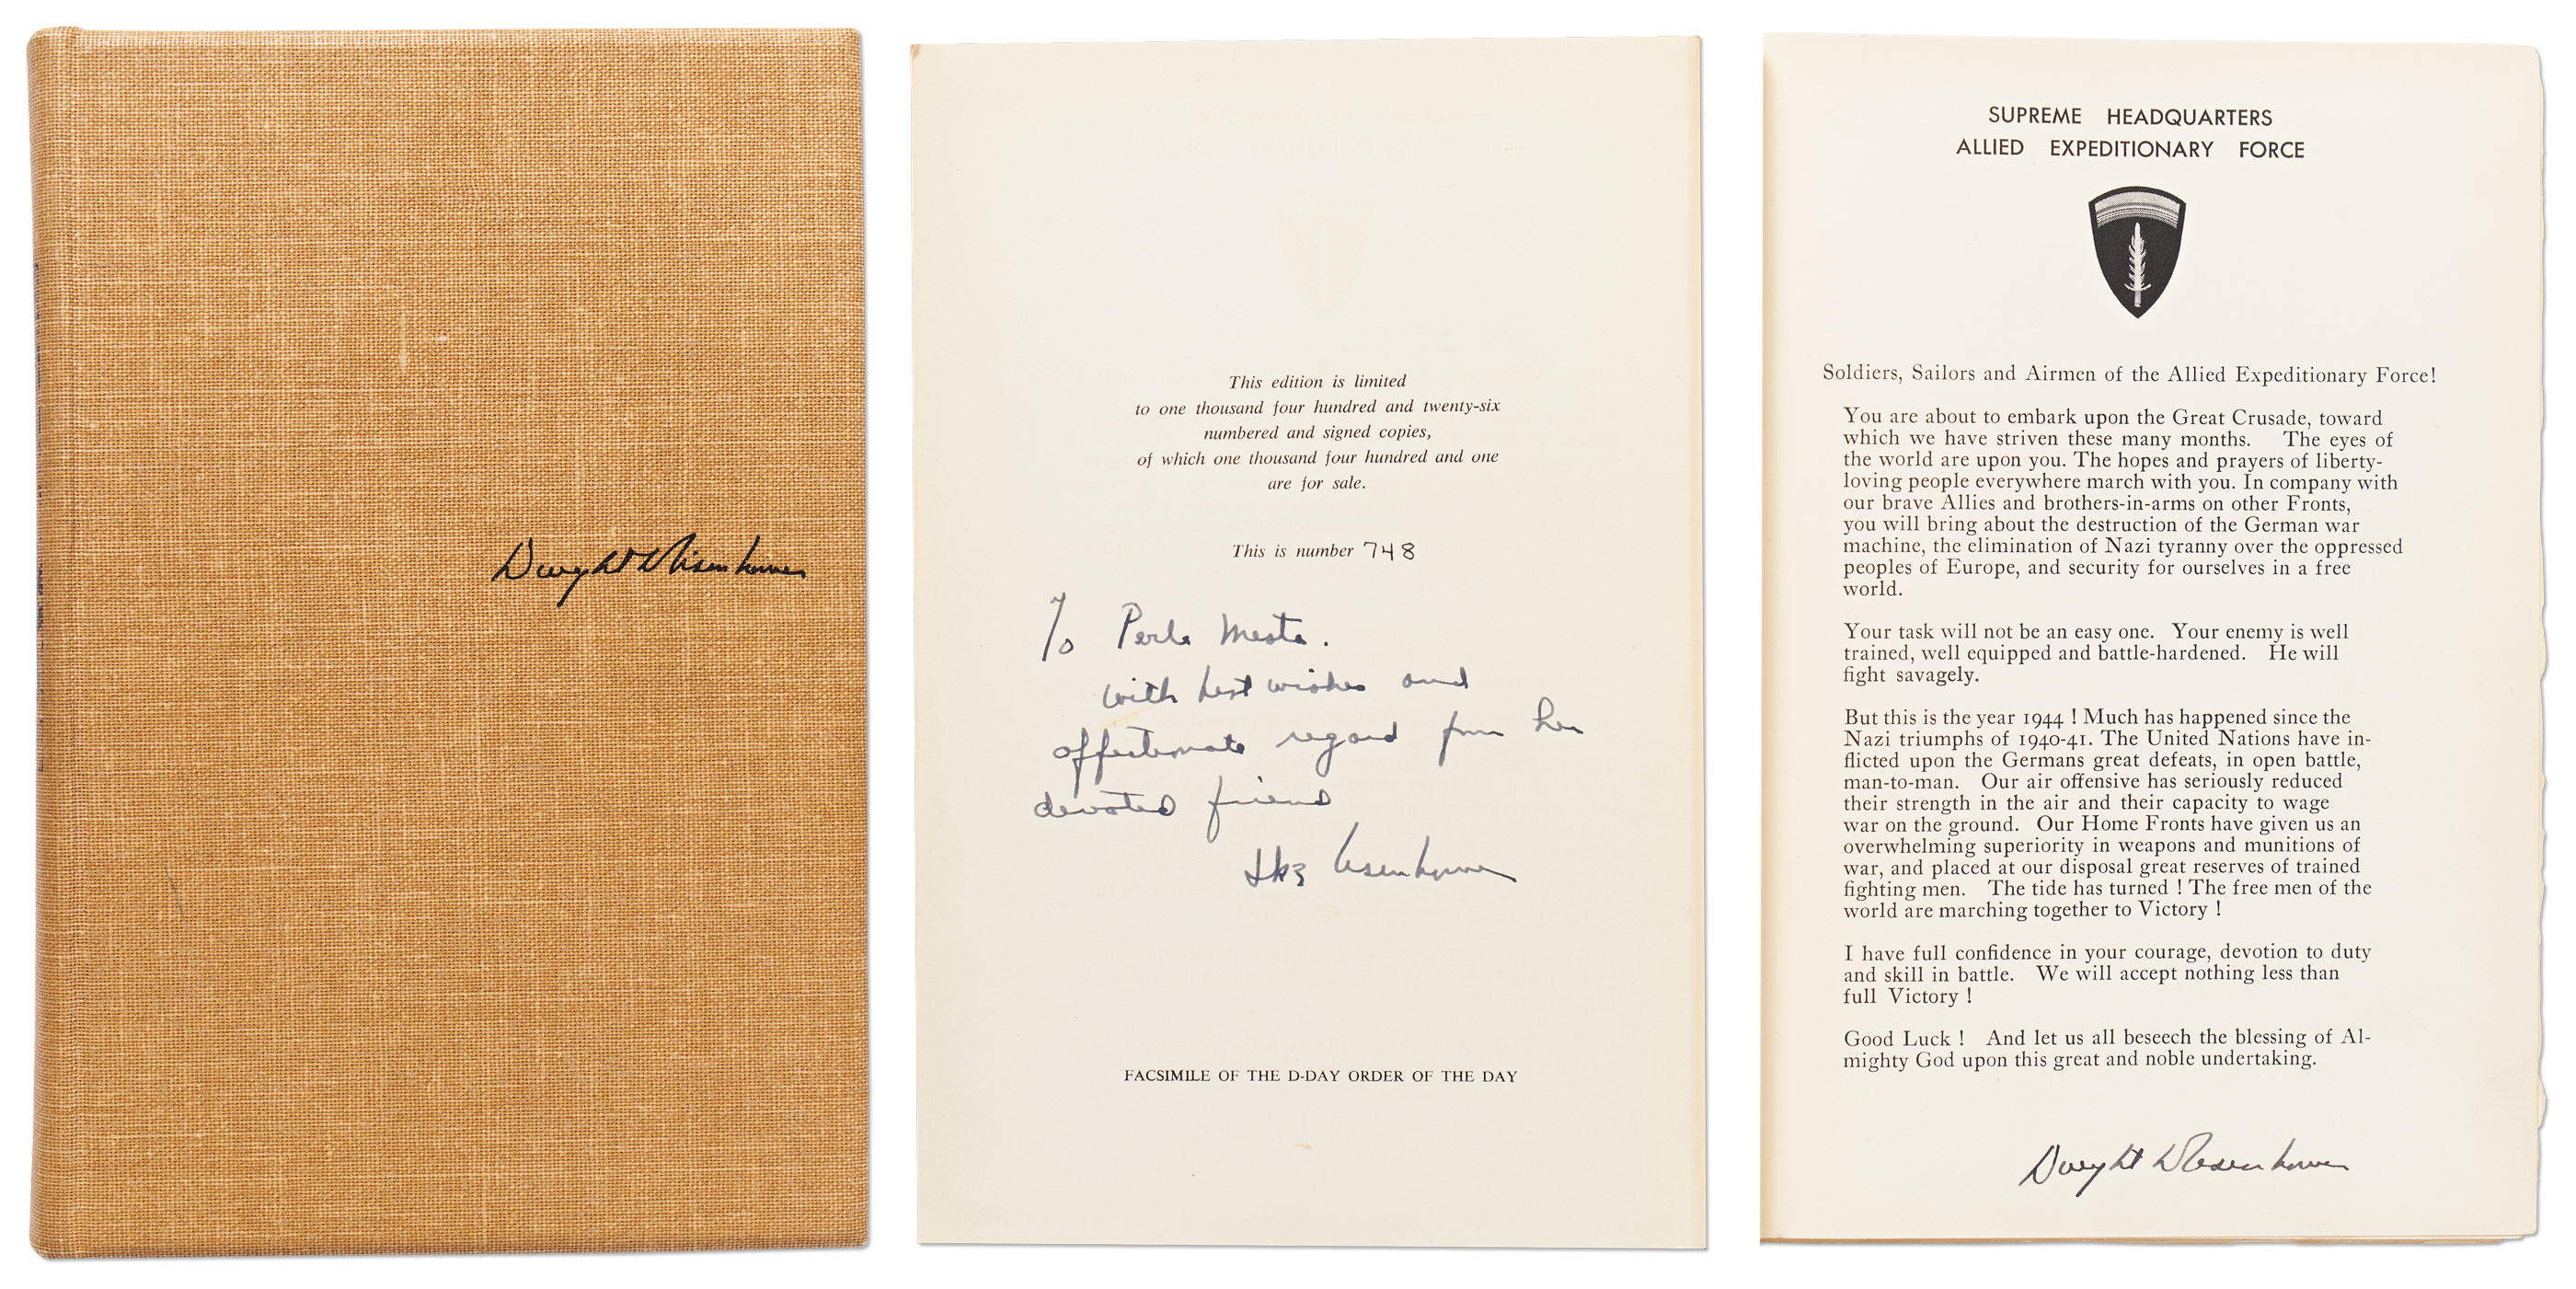 Dwight D Eisenhower
This edition is limited
to one thousand four hundred and twenty-six
numbered and signed copies,
of which one thousand four hundred and one
are for sale.
This is number 748
To Perle Mesta.
with best wishes and
affectionate regard from her
devoted friend
Ike Eisenhower
FACSIMILE OF THE D-DAY ORDER OF THE DAY
SUPREME HEADQUARTERS
ALLIED EXPEDITIONARY FORCE
Soldiers, Sailors and Airmen of the Allied Expeditionary Force!
You are about to embark upon the Great Crusade, toward
which we have striven these many months. The eyes of
the world are upon you. The hopes and prayers of liberty-
loving people everywhere march with you. In company with
our brave Allies and brothers-in-arms on other Fronts,
you will bring about the destruction of the German war
machine, the elimination of Nazi tyranny over the oppressed
peoples of Europe, and security for ourselves in a free
world.
Your task will not be an easy one. Your enemy is well
trained, well equipped and battle-hardened. He will
fight savagely.
But this is the year 1944 ! Much has happened since the
Nazi triumphs of 1940-41. The United Nations have in-
flicted upon the Germans great defeats, in open battle,
man-to-man. Our air offensive has seriously reduced
their strength in the air and their capacity to wage
war on the ground. Our Home Fronts have given us an
overwhelming superiority in weapons and munitions of
war, and placed at our disposal great reserves of trained
fighting men. The tide has turned ! The free men of the
world are marching together to Victory !
I have full confidence in your courage, devotion to duty
and skill in battle. We will accept nothing less than
full Victory !
Good Luck ! And let us all beseech the blessing of Al-
mighty God upon this great and noble undertaking.
Dwight D Eisenhower